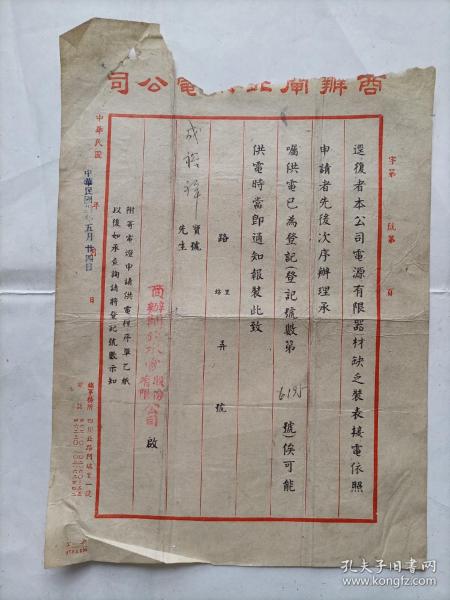 商辦閘北水電公司
字第 號第 頁
逕復者本公司電源有限器材缺乏裝表接電依照
申請者先後次序辦理承
囑供電已為登記(登記號數第 6195 號)俟可能
供電時當即通知報裝此致
路 里坊 弄 號
寶號
先生
商辦閘北水電股份有限公司 啟
附寄電燈申請供電程序單乙紙
以後如承查詢請將登記號數示知
中華民國 年 月 日
五月廿四日
總事務所
孔夫子旧书网
www.kongfz.com